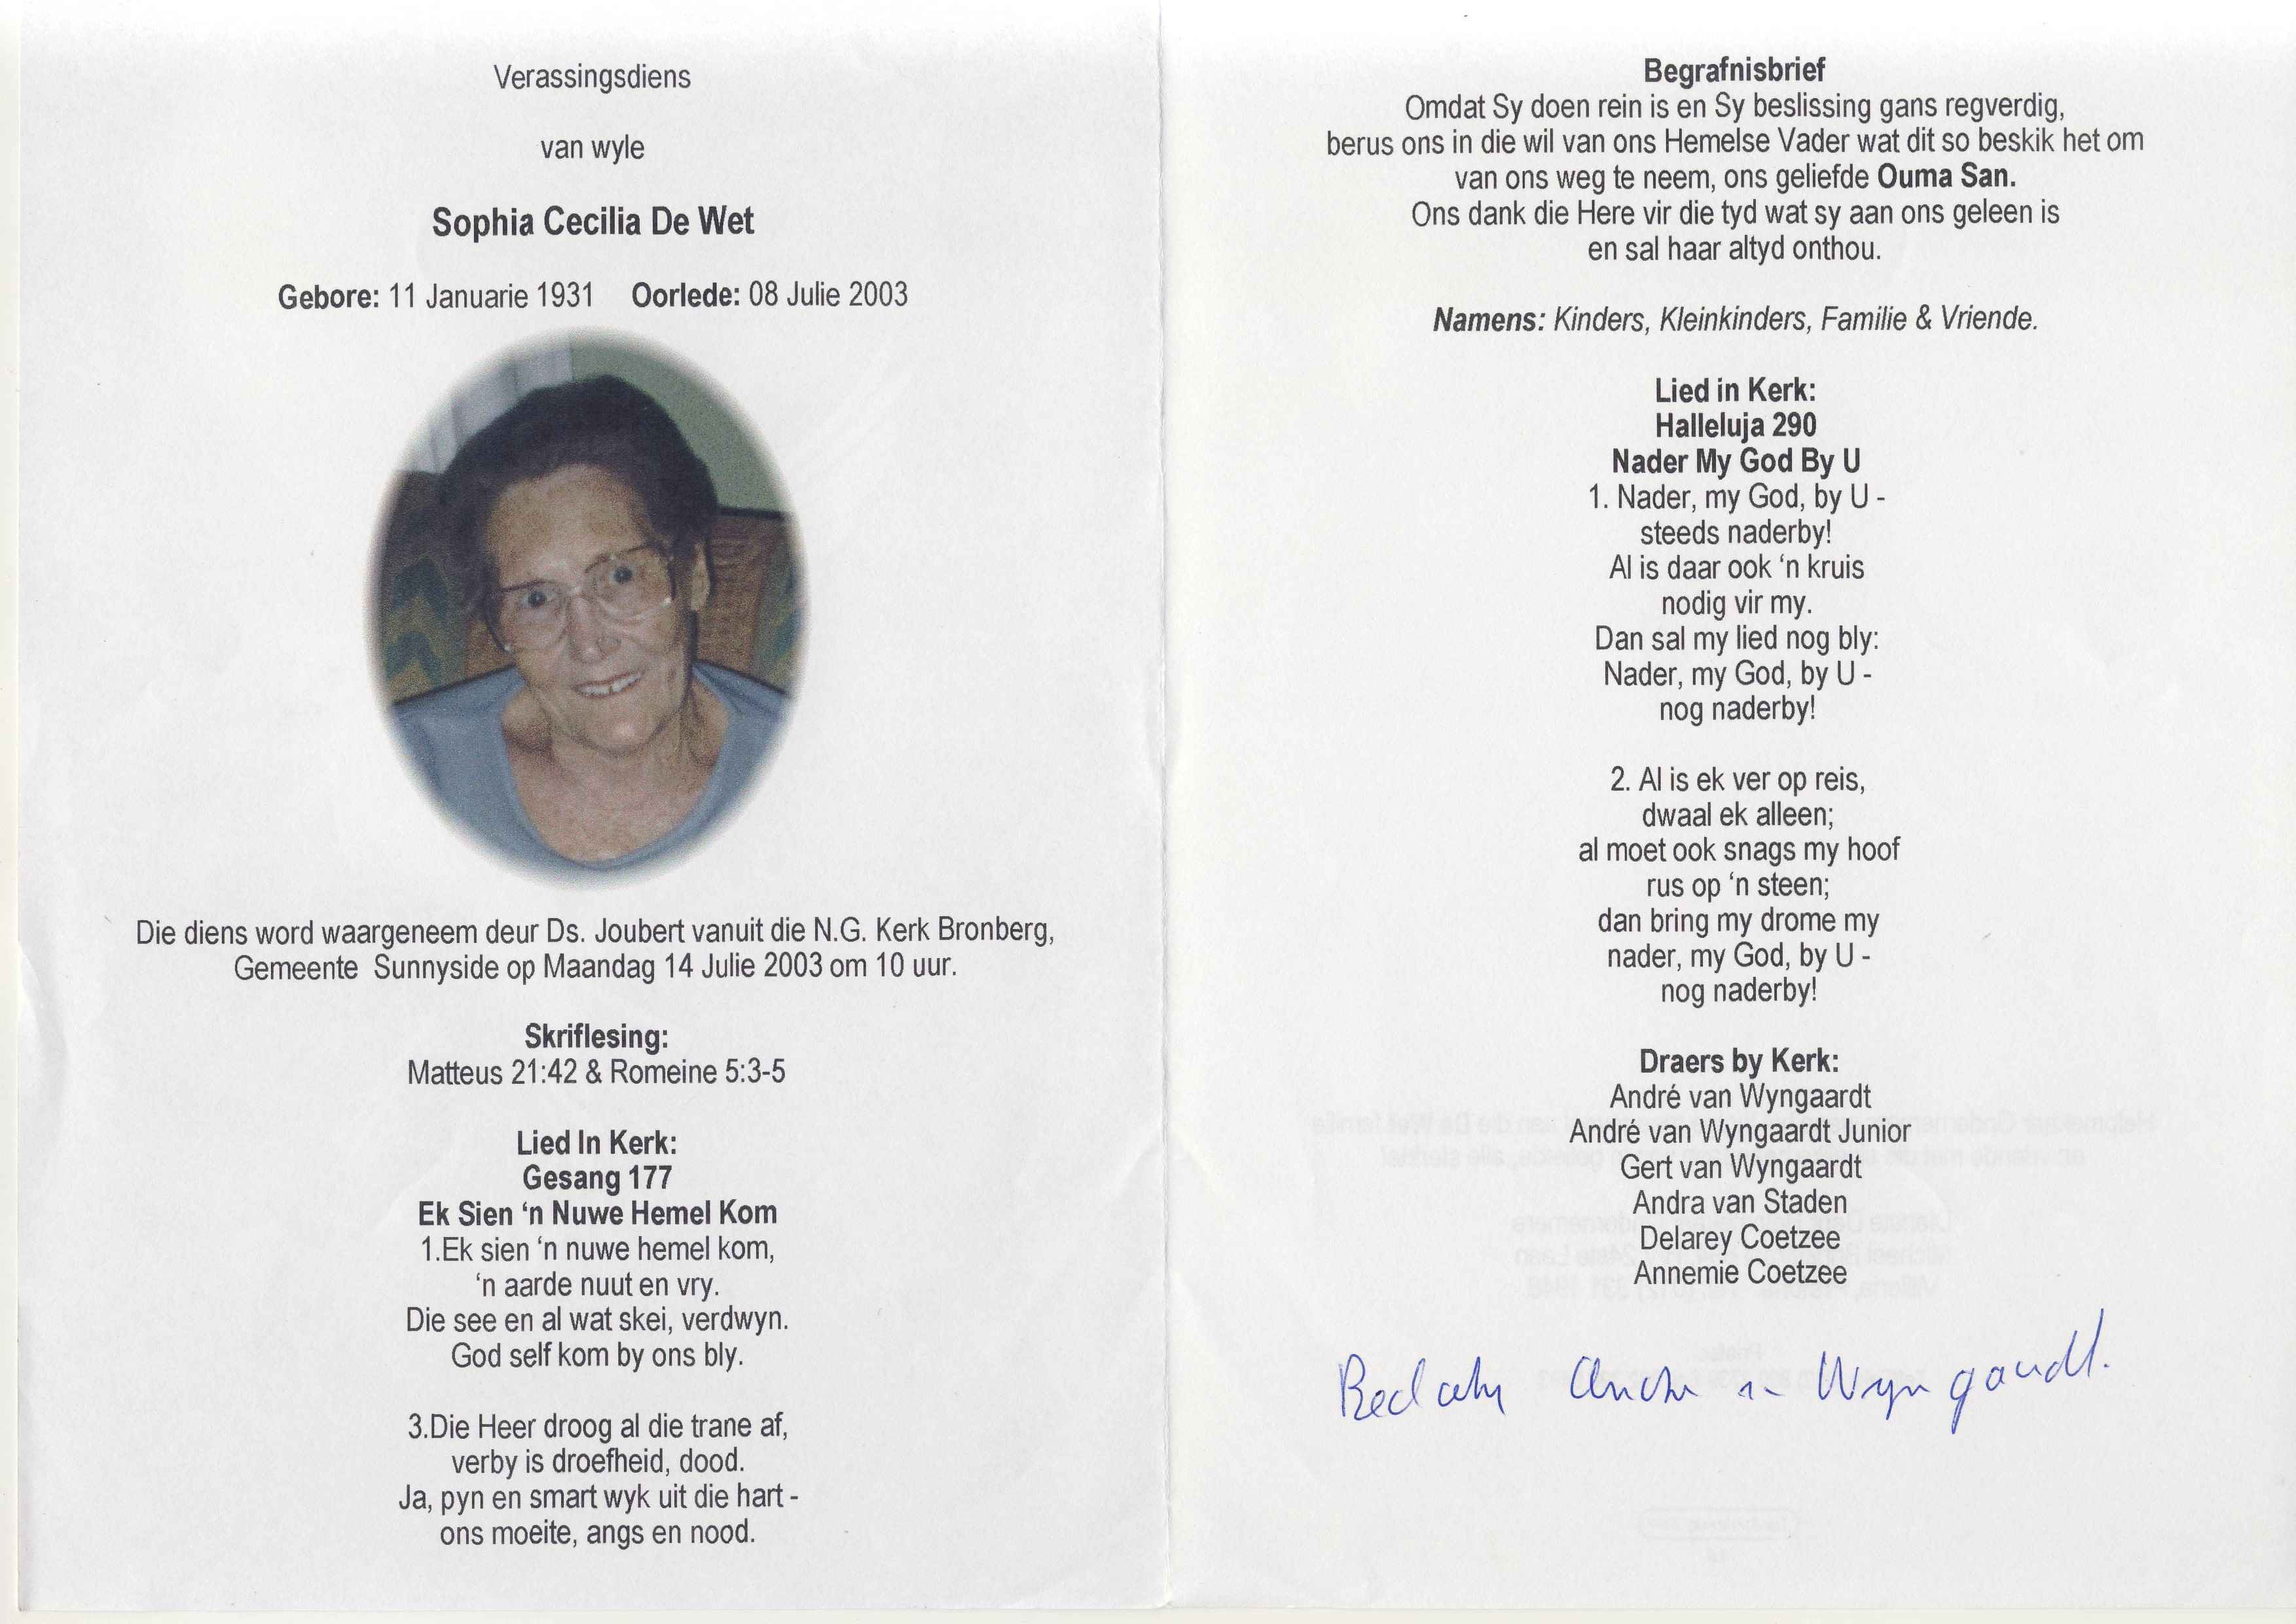 Verassingsdiens
van wyle
Sophia Cecilia De Wet
Gebore: 11 Januarie 1931 Oorlede: 08 Julie 2003
Die diens word waargeneem deur Ds. Joubert vanuit die N.G. Kerk Bronberg,
Gemeente Sunnyside op Maandag 14 Julie 2003 om 10 uur.
Skriflesing:
Matteus 21:42 & Romeine 5:3-5
Lied In Kerk:
Gesang 177
Ek Sien ‘n Nuwe Hemel Kom
1.Ek sien ‘n nuwe hemel kom,
‘n aarde nuut en vry.
Die see en al wat skei, verdwyn.
God self kom by ons bly.
3.Die Heer droog al die trane af,
verby is droefheid, dood.
Ja, pyn en smart wyk uit die hart -
ons moeite, angs en nood.
Begrafnisbrief
Omdat Sy doen rein is en Sy beslissing gans regverdig,
berus ons in die wil van ons Hemelse Vader wat dit so beskik het om
van ons weg te neem, ons geliefde Ouma San.
Ons dank die Here vir die tyd wat sy aan ons geleen is
en sal haar altyd onthou.
Namens: Kinders, Kleinkinders, Familie & Vriende.
Lied in Kerk:
Halleluja 290
Nader My God By U
1. Nader, my God, by U -
steeds naderby!
Al is daar ook ‘n kruis
nodig vir my.
Dan sal my lied nog bly:
Nader, my God, by U -
nog naderby!
2. Al is ek ver op reis,
dwaal ek alleen;
al moet ook snags my hoof
rus op ‘n steen;
dan bring my drome my
nader, my God, by U -
nog naderby!
Draers by Kerk:
André van Wyngaardt
André van Wyngaardt Junior
Gert van Wyngaardt
Andra van Staden
Delarey Coetzee
Annemie Coetzee